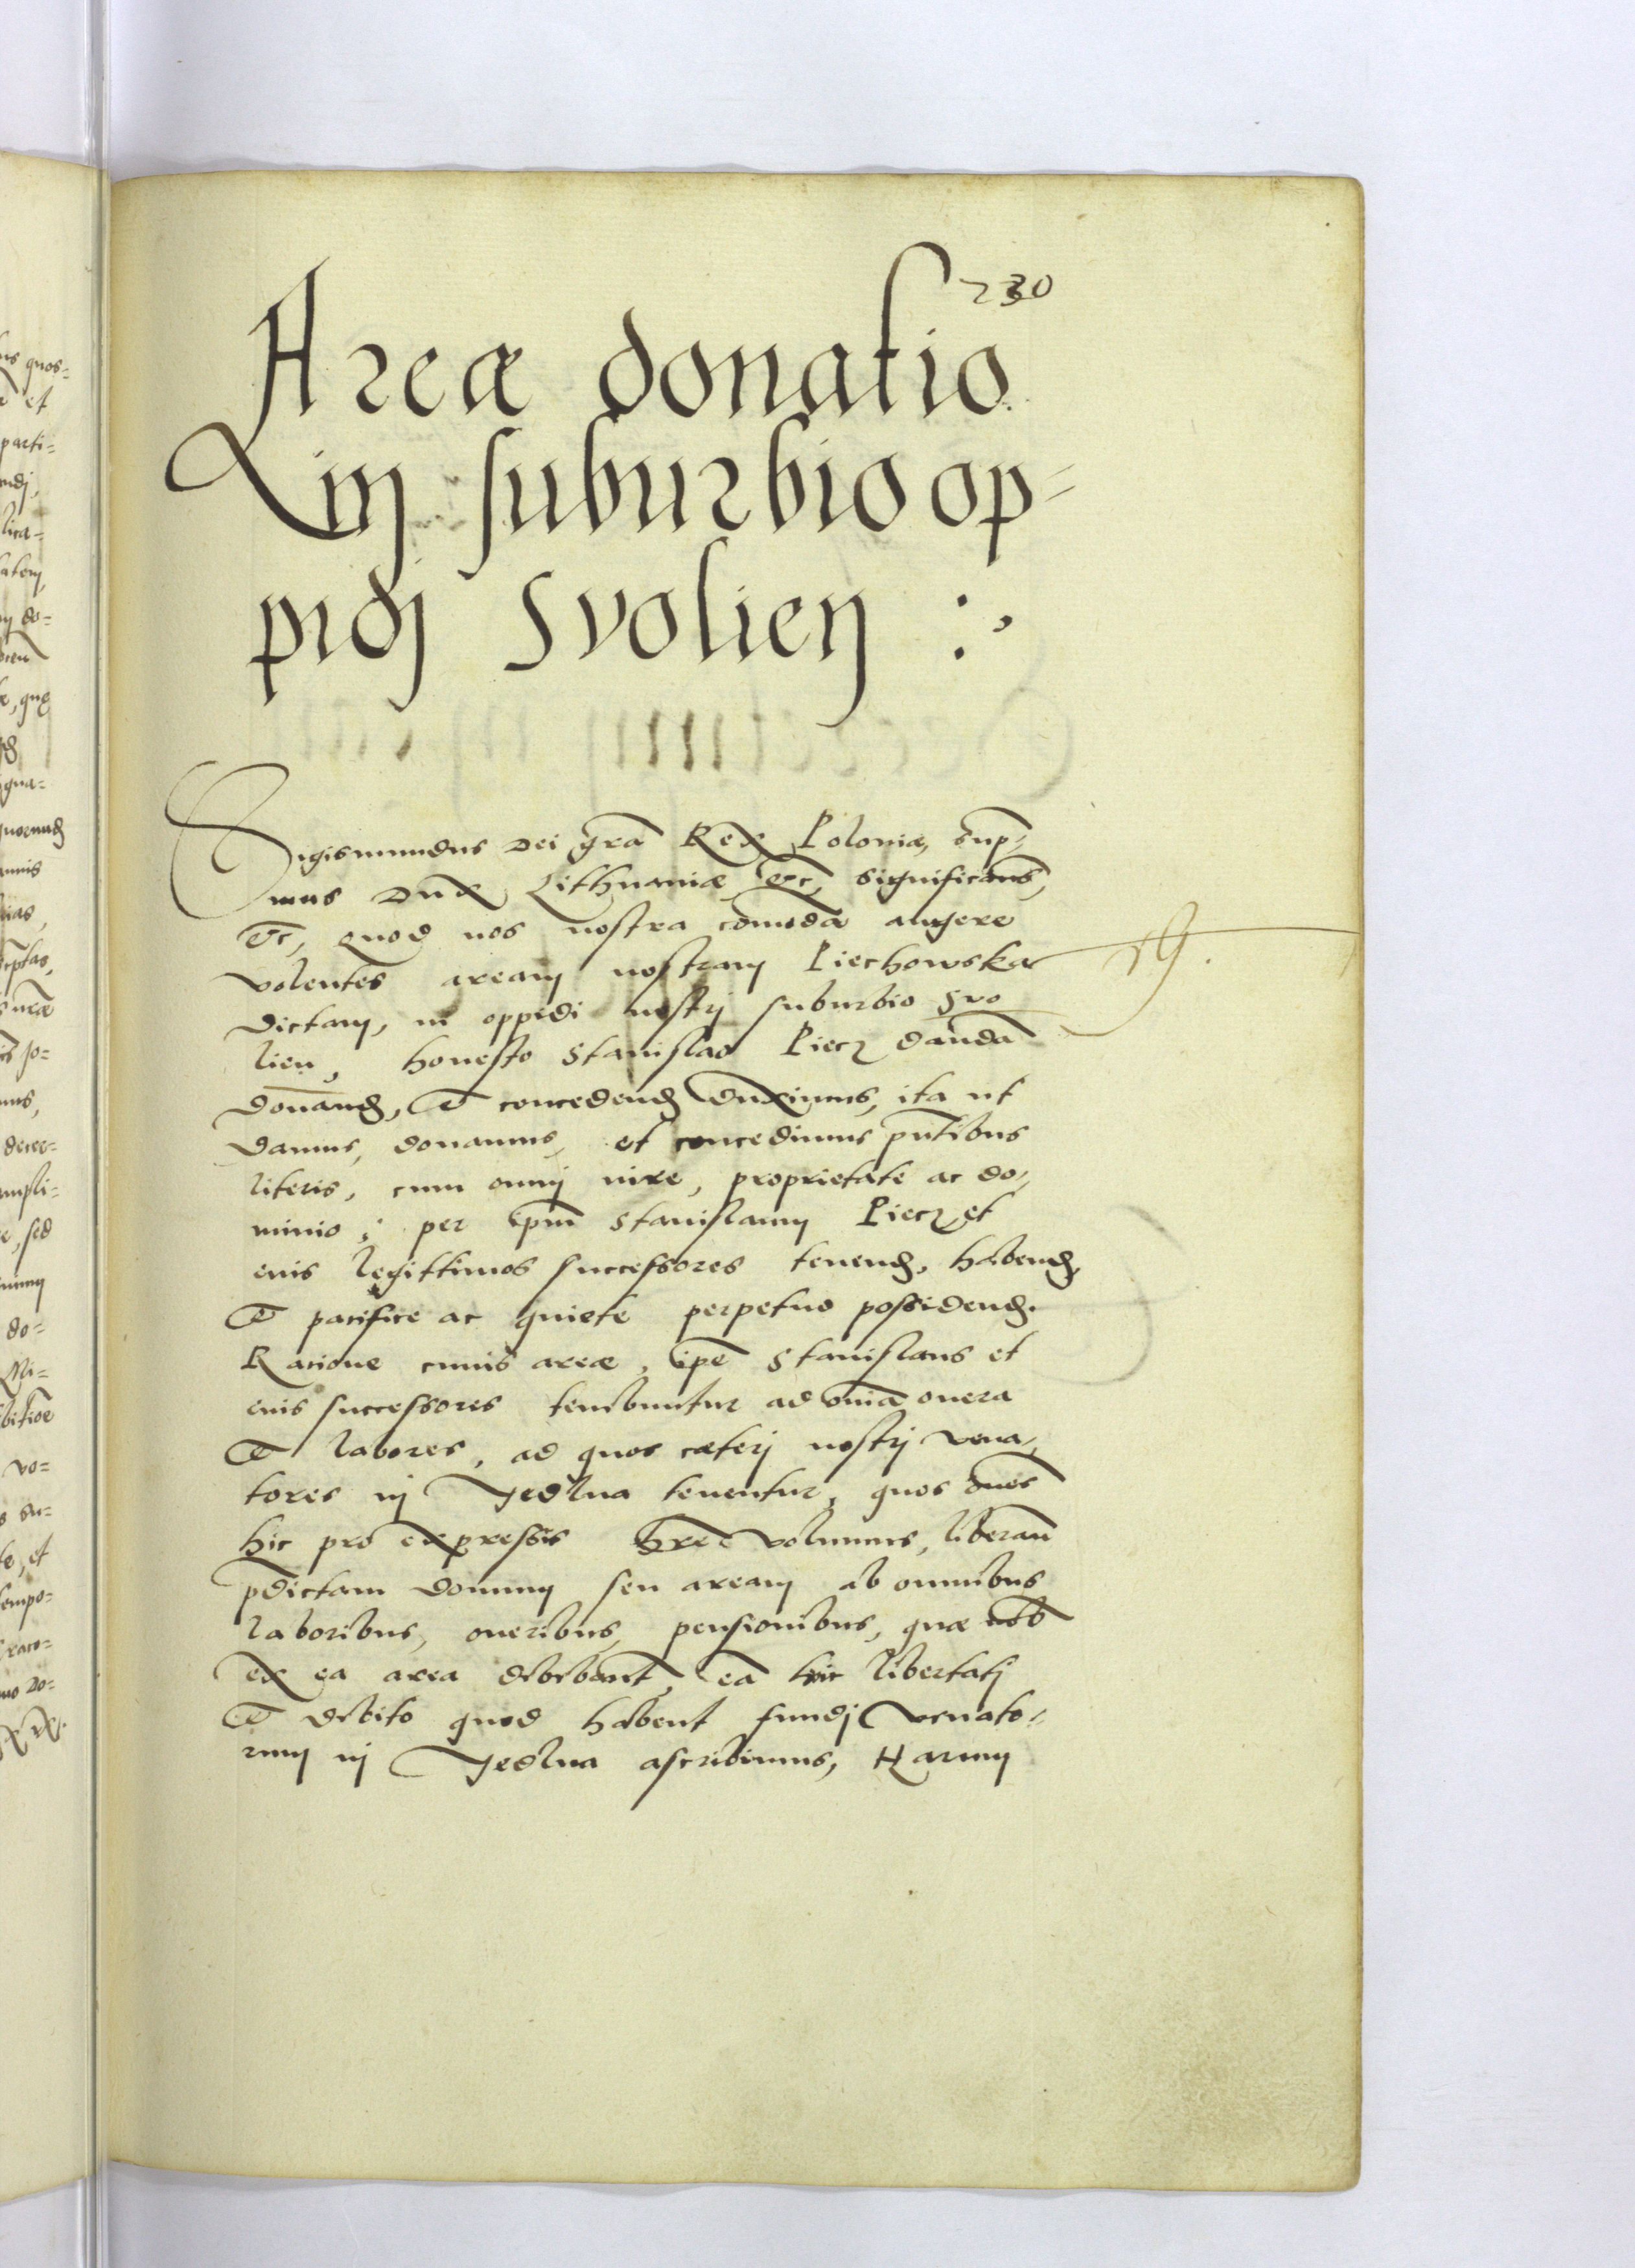 230
Areæ donatio
in suburbio op-
pidj Svolien :
Sigismundus Dei gra͞ Rex Poloniæ, sup-
mus Dux Lithuaniæ etc, significam͞s,
etc, quod nos nostra com͞oda augere
volentes aream nostram Piechowska
19.
dictam, in oppidi nostrj suburbio Svo
lien, honesto Stanislao Piecz danda͞
donand, et concedend duximus, ita ut
damus, donamus, et concedimus pn͞tibus
literis, cum omnj iure, proprietate ac do-
minio, per ipm͞ Stanislaum Piecz et
euis legittimos successores tenend, habend,
et pacifice ac quiete perpetuo possidend.
Ratione cuius areæ, ipe͞ Stanislaus et
euis successores tenebuntur ad om͞ia onera
et labores, ad quos cæterj nostrj vena-
tores in Jedlna tenentur, quos om͞es
hic pro expressis hr͞e volumus, liberan͞
pdictam domum seu aream ab omnibus
laboribus, oneribus, pensionibus, quæ nob͞
ex ea area debebant, ea͞ hic libertatj
et debito quod habent fundj venato-
rum in Jedlna ascribimus, Harum